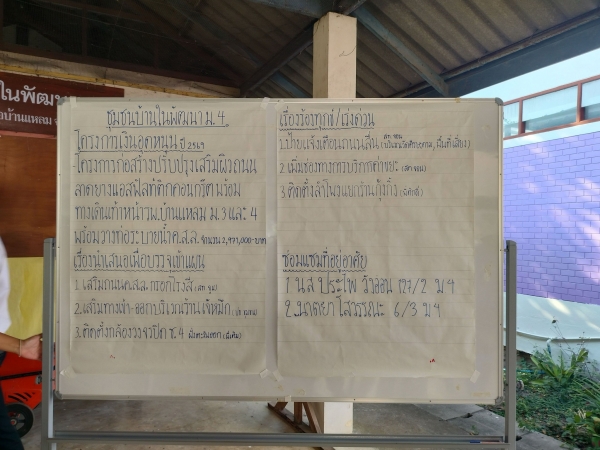 ในพัฒนา
บ้านแหลม
ชุมชนบ้านในพัฒนา ม. 4
โครงการเงินอุดหนุน ปี 2569
โครงการก่อสร้างปรับปรุงเสริมผิวถนน
ลาดยางแอสฟัลท์ติกคอนกรีต พร้อม
ทางเดินเท้าหน้ารพ.บ้านแหลม ม.3 และ 4
พร้อมวางท่อระบายน้ำค.ส.ล. จำนวน 2,971,000-บาท
เรื่องนำเสนอเพื่อบรรจุเข้าแผน
1. เสริมถนนค.ส.ล.กรอกโรงสี
2. เสริมทางเข้า-ออกบริเวณร้านเจ้หมึก
3. ติดตั้งกล้องวงจรปิด ซ.4
เรื่องร้องทุกข์/เร่งด่วน
1. ป้ายแจ้งเตือนถนนลื่น
2. เพิ่มช่องทางการบริการค่าขยะ
3. ติดตั้งลำโพงแยกร้านกุ้งกิ้ง
ซ่อมแซมที่อยู่อาศัย
1 น.ส ประไพ 127/2 ม4
2. 6/3 ม4